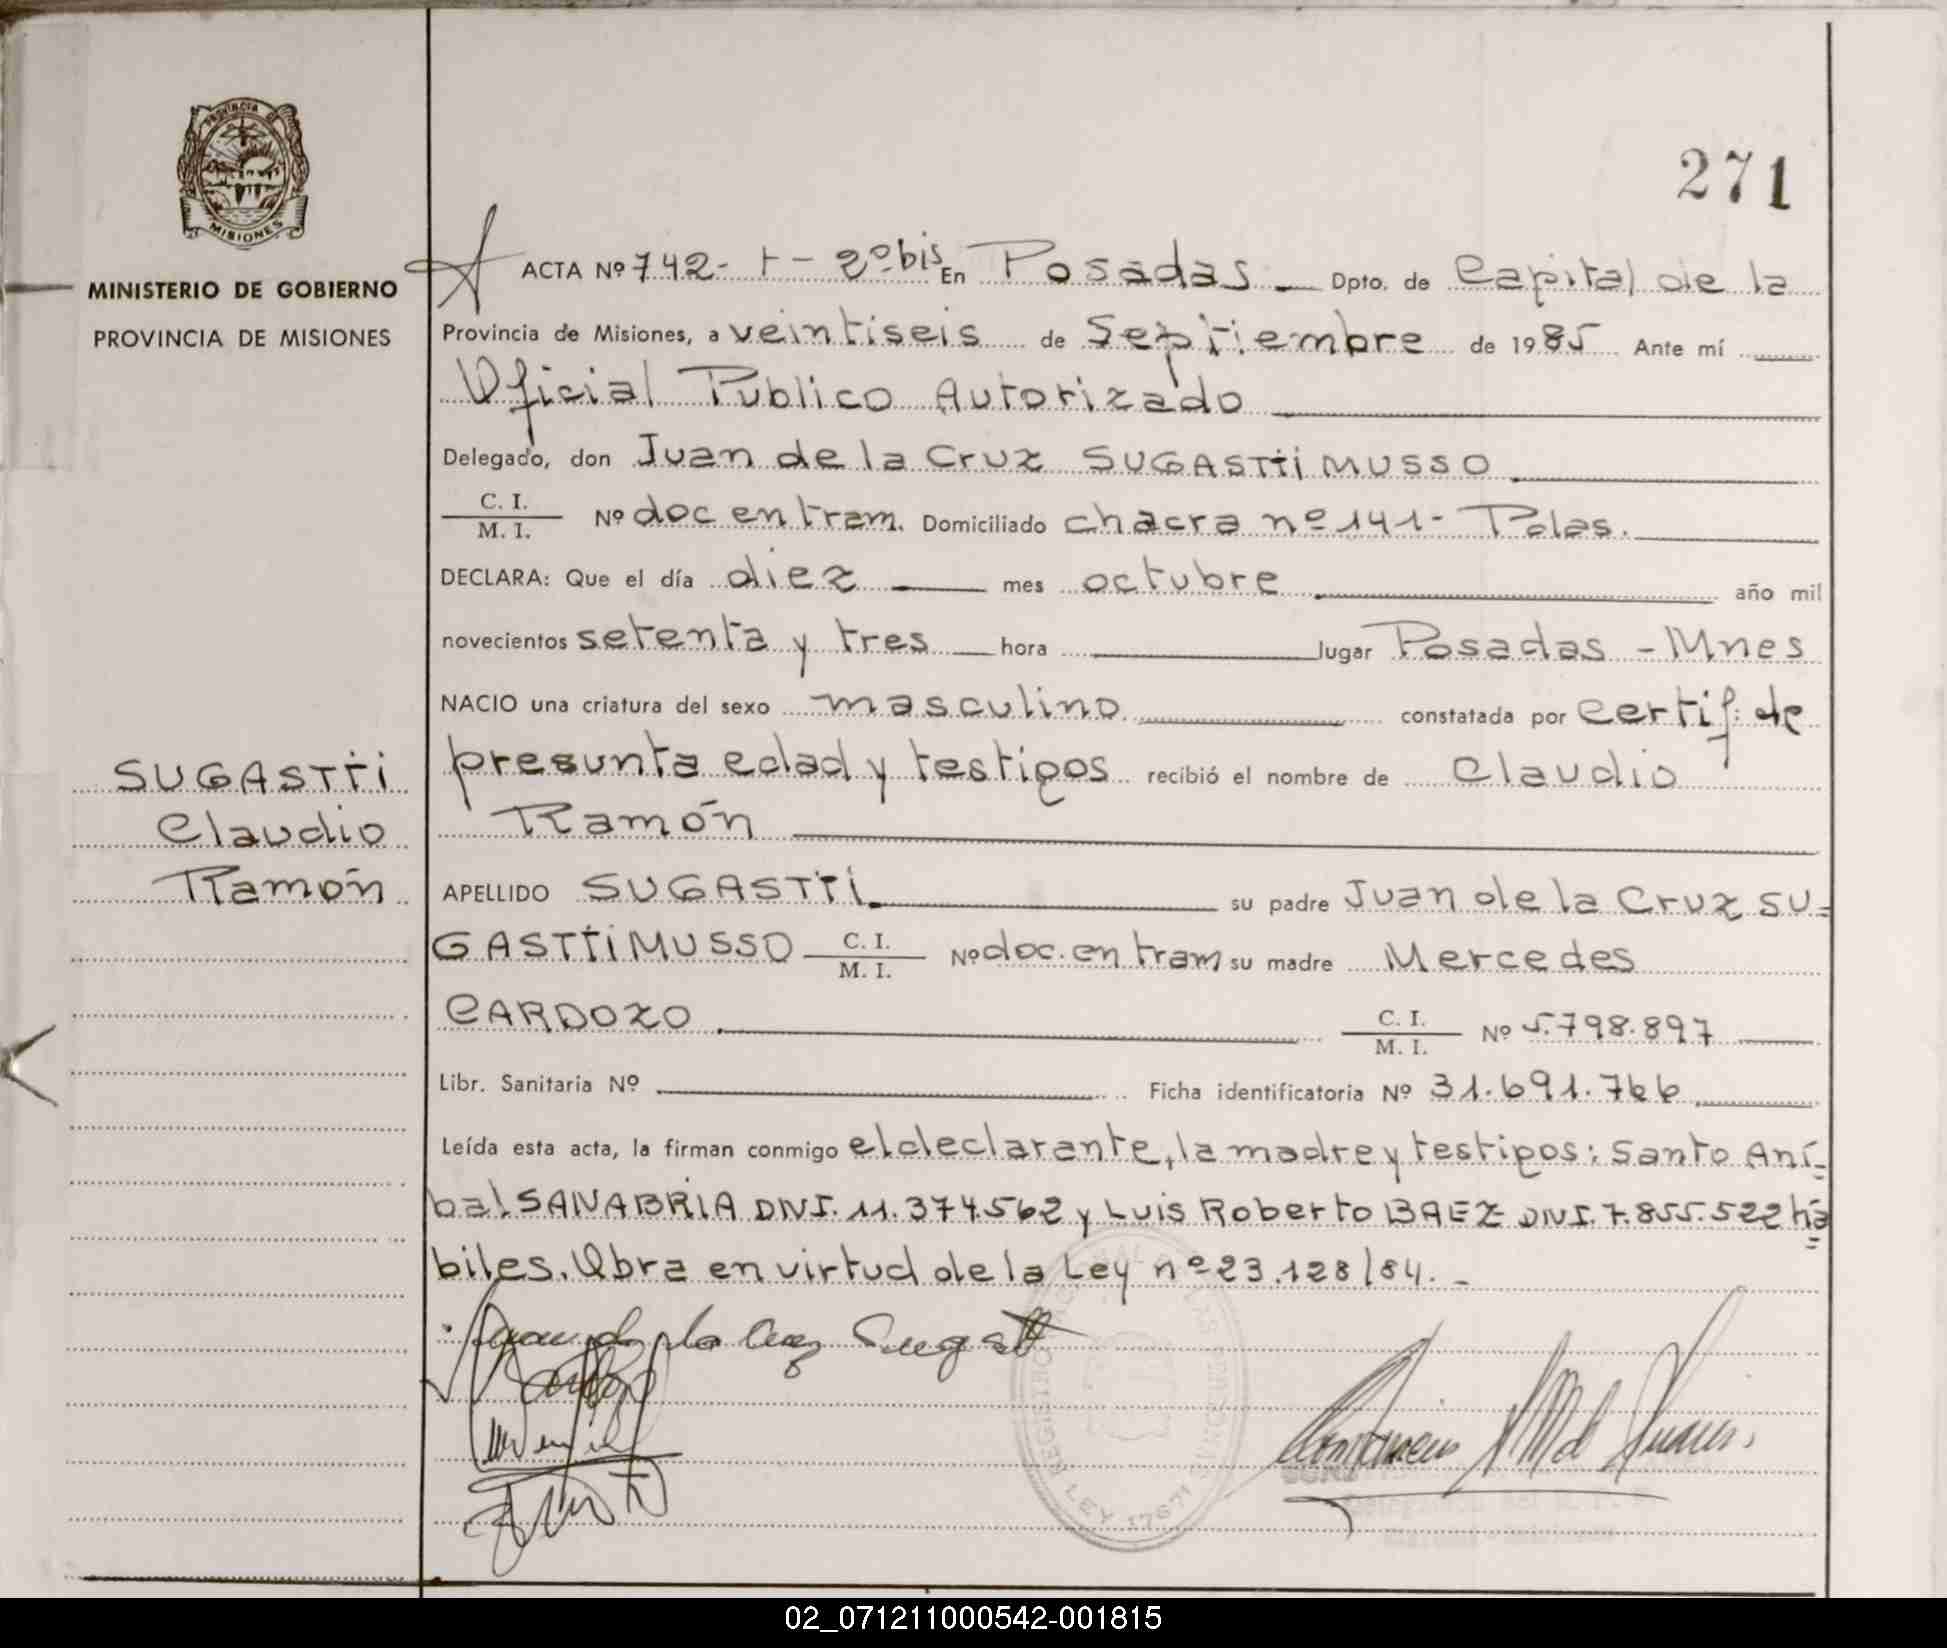 PROVINCIA DE
MISIONES
MINISTERIO DE GOBIERNO
PROVINCIA DE MISIONES
SUGASTTI
Claudio
Ramón
271
ACTA Nº 742- t - 2º bis En Posadas Dpto. de Capital de la
Provincia de Misiones, a veintiseis de Septiembre de 1985 Ante mí
Oficial Publico Autorizado
Delegado, don Juan de la Cruz SUGASTTI MUSSO
C. I.
M. I. Nº doc en tram. Domiciliado chacra nº 141- Pdas.
DECLARA: Que el día diez mes octubre año mil
novecientos setenta y tres hora lugar Posadas - Mnes
NACIO una criatura del sexo masculino constatada por certif. de
presunta edad y testigos recibió el nombre de Claudio
Ramón
APELLIDO SUGASTTI su padre Juan de la Cruz SU=
GASTTI MUSSO C. I. M. I. Nº doc. en tram su madre Mercedes
CARDOZO C. I. M. I. Nº 5.798.897
Libr. Sanitaria Nº Ficha identificatoria Nº 31.691.766
Leída esta acta, la firman conmigo el declarante, la madre y testigos: Santo Aní-
bal SANABRIA DNI. 11.374.562 y Luis Roberto BAEZ DNI. 7.855.522 há=
biles. Obra en virtud de la Ley nº 23.128/84. -
Juan de la Cruz Sugastt
REGISTRO
LEY 17671
02_071211000542-001815